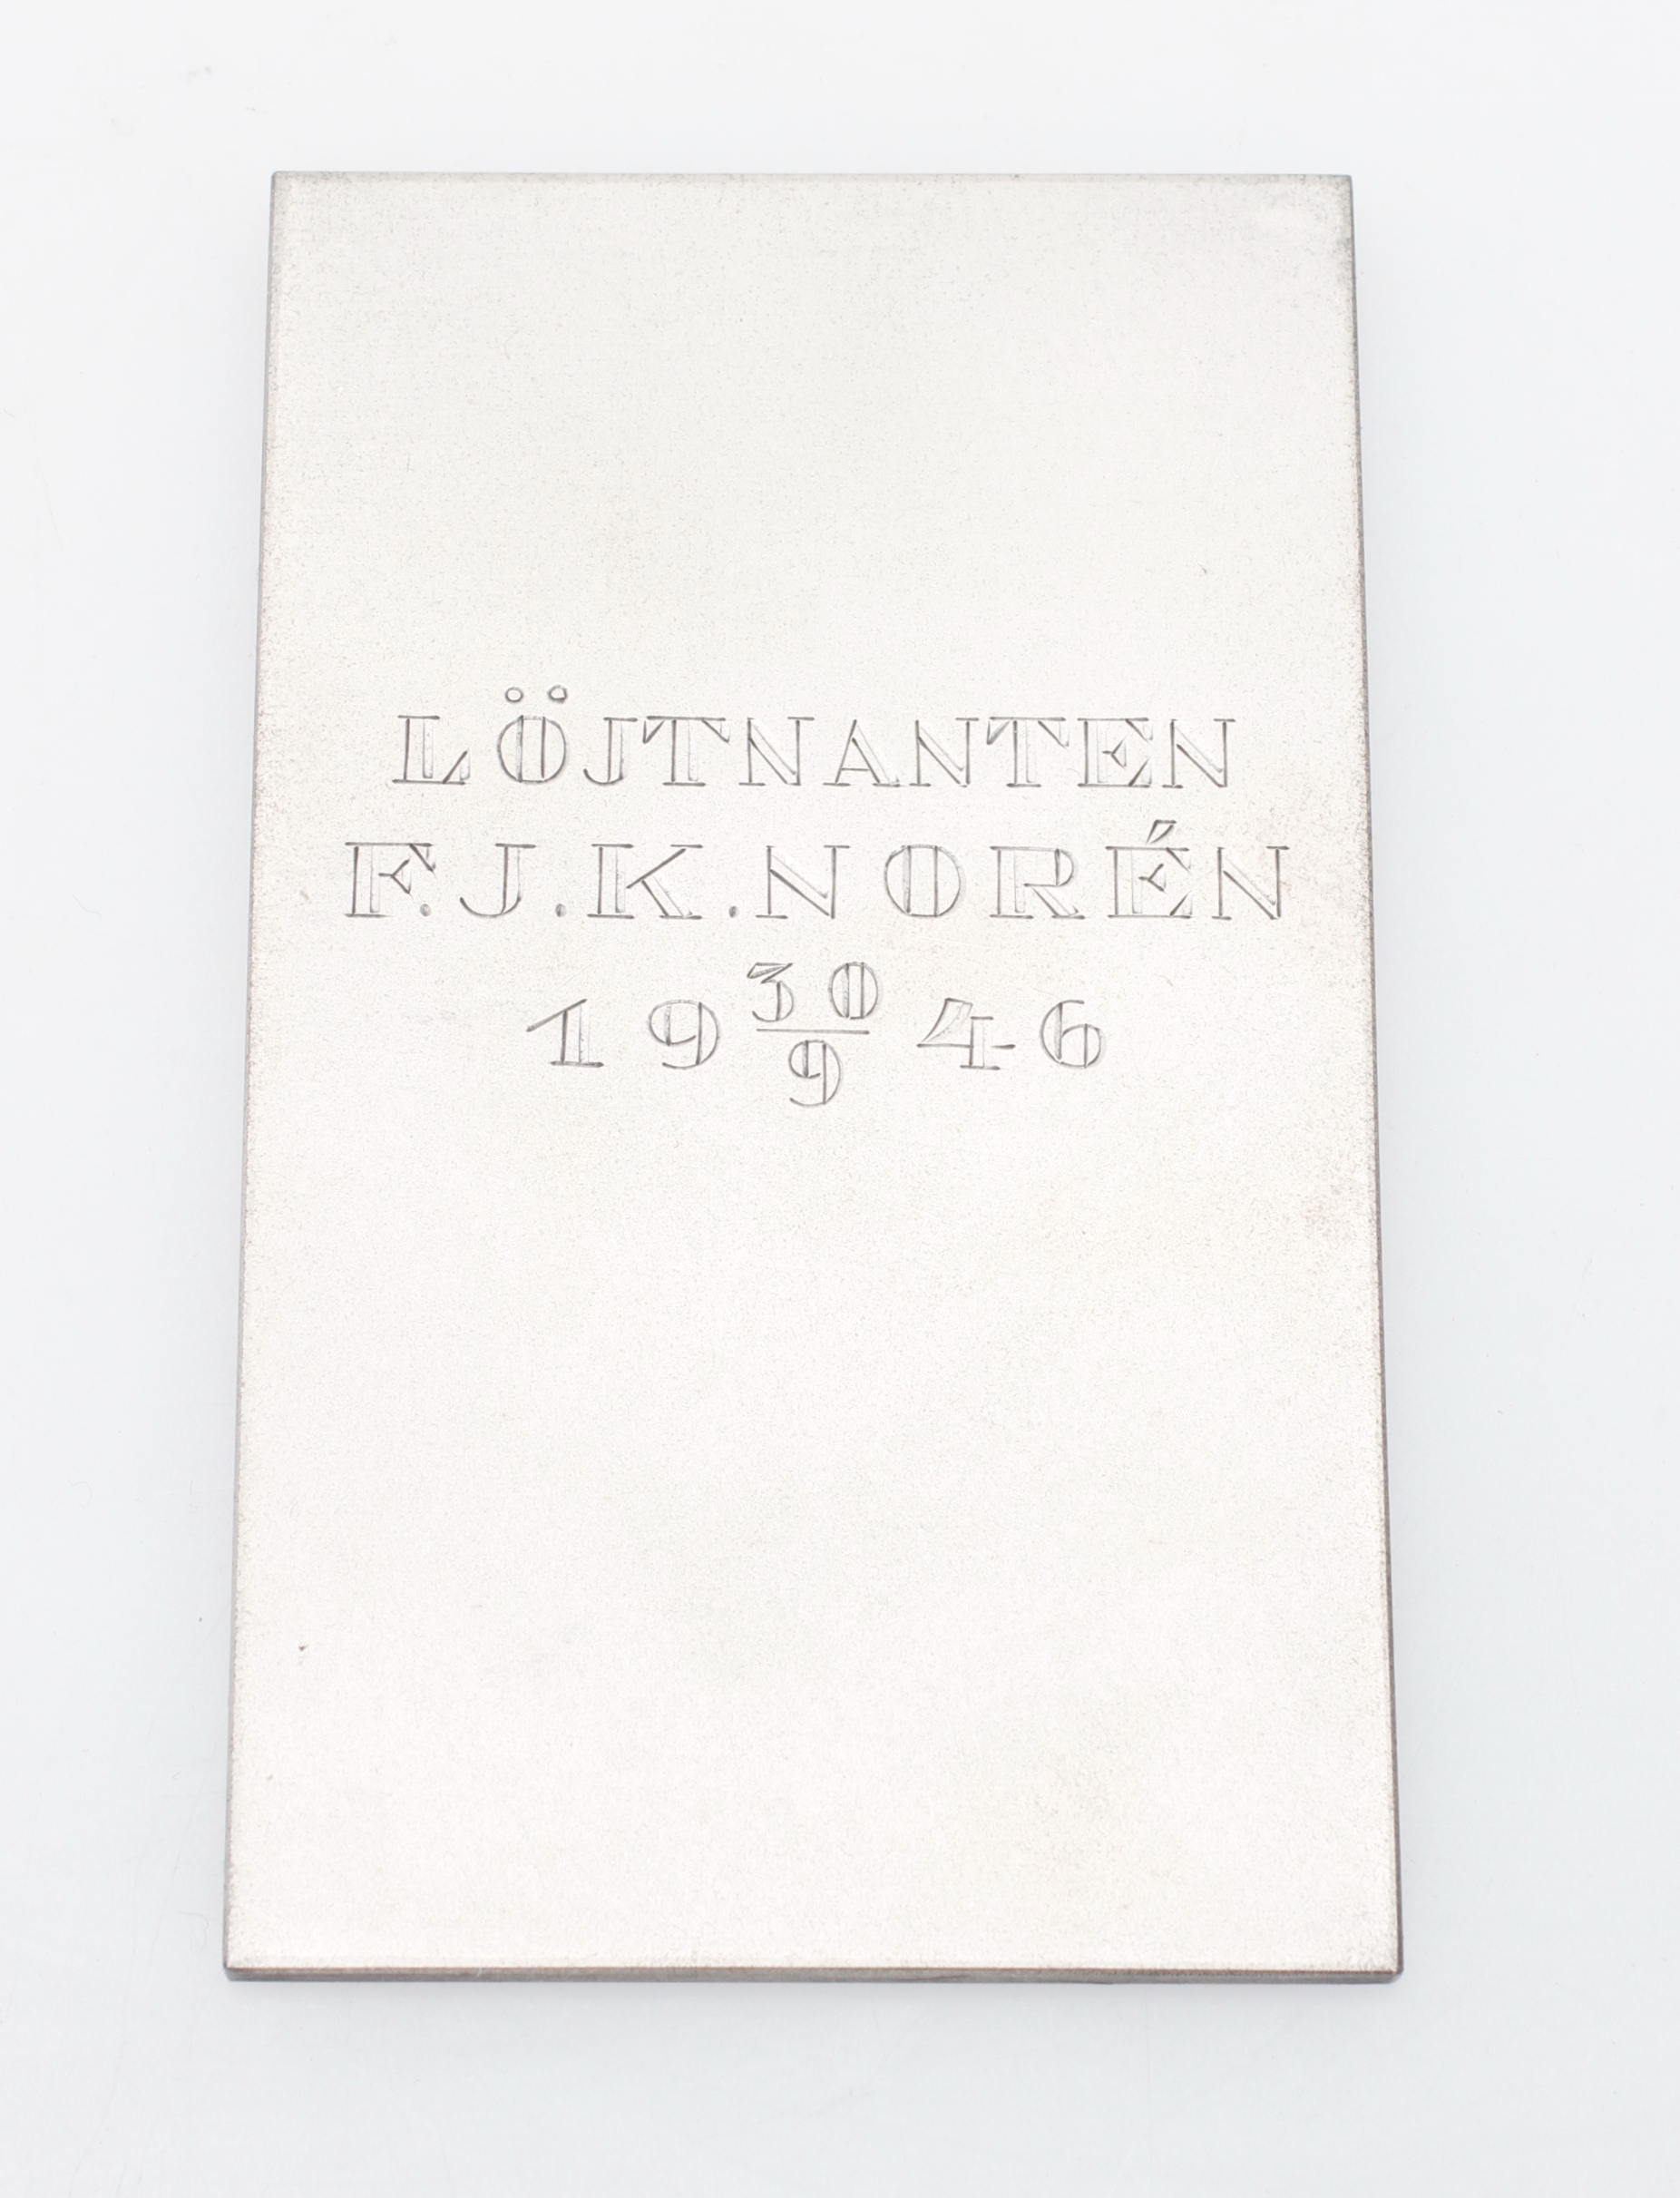 LÖJTNANTEN
F.J.K.NORÉN
19 30/9 46